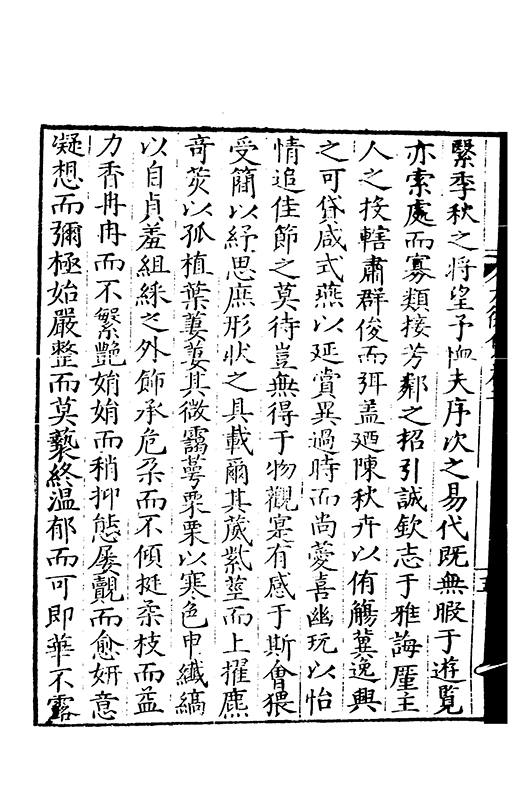 緊季秋之將望予恤夫序次之易代既無暇于遊覧
亦索處而寡類接芳鄰之招引誠欽志于雅誨厪主
人之投轄肅群俊而弭盖廼陳秋卉以侑觴冀逸興
之可貸咸式燕以延賞異過時而尚薆喜幽玩以怡
情追佳節之莫待豈無得于物觀寔有感于斯會猥
受簡以紓思庶形狀之具載爾其葳紫莖而上擢麃
竒荄以孤植葉萋萋其微靄蕚栗栗以寒色申纖縞
以自貞羞組綵之外飾承危朶而不傾挺柔枝而益
力香冉冉而不繁艷娟娟而稍抑態屡覿而愈妍意
凝想而彌極始嚴整而莫褻終温郁而可即華不露
五